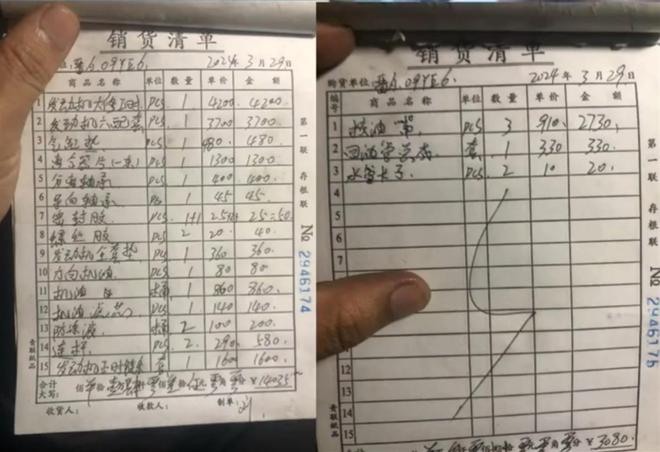 销货清单
晋A.09YE6. 2024年3月29日
商品名称 单位 数量 单价 金额
1 发动机大修工时 pcs 1 4200. 4200.
2 发动机六配套 pcs 1 3700 3700.
3 气缸垫 pcs 1 480. 480
4 离合器片(一套) pcs 1 1300 1300.
5 分离轴承 pcs 1 400 400.
6 导向轴承 pcs 1 45 45.
7 密封胶 pcs 1+1
8 螺丝胶 pcs 2 20. 40.
9 发动机全套垫 pcs 1 360 360.
10 方向机油 pcs 1 80 80
11 机油 桶 1 860 860.
12 机油滤芯 pcs 1 140 140.
13 防冻液 桶 2 100 200.
14 连杆 pcs. 2. 290. 580.
15 发动机正时 套 1 1600 1600.
合计
大写: ¥14035
收货人: 收款人: 制单:
第一联 存根联
No 2946174
青联纸品
销货清单
购货单位: 晋A.09YE6. 2024年3月29日
编号 商品名称 单位 数量 单价 金额
1 pcs 3 910. 2730.
2 回油管总成 套 1 330 330
3 水管卡子 pcs 2 10 20.
4
5
6
7
8
9
10
11
12
13
14
15
¥3080.
第一联 存根联
No 2946175
青联纸品